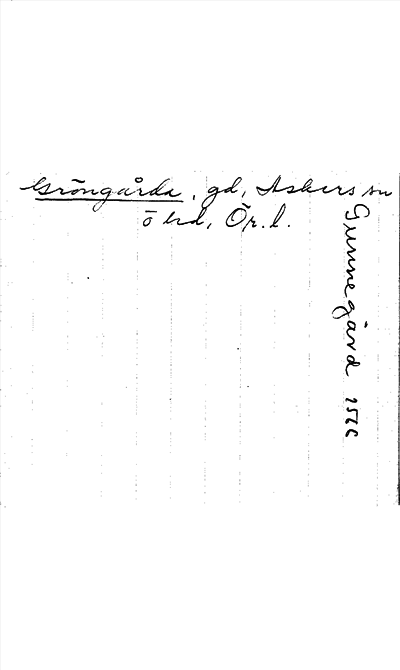 Gröngårda, gd, Askers sn
ö hd, Ör. l.
Gunnegård 1566